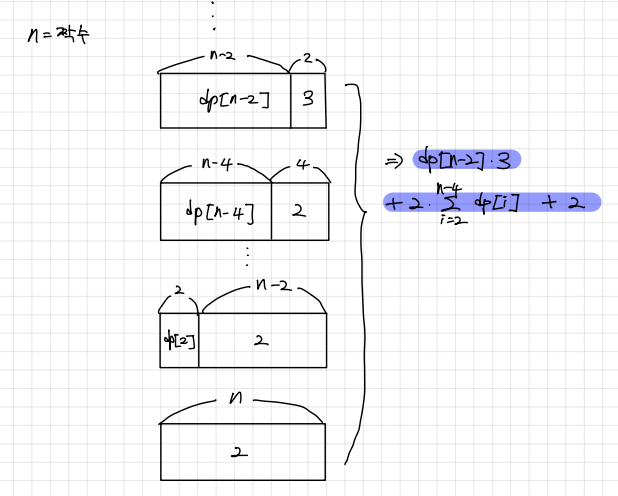 n = 짝수
n-2 2
dp[n-2] 3
n-4 4
dp[n-4] 2
2 n-2
dp[2] 2
n
2
⇒ dp[n-2]·3
+ 2· n-4 Σ i=2 dp[i] + 2